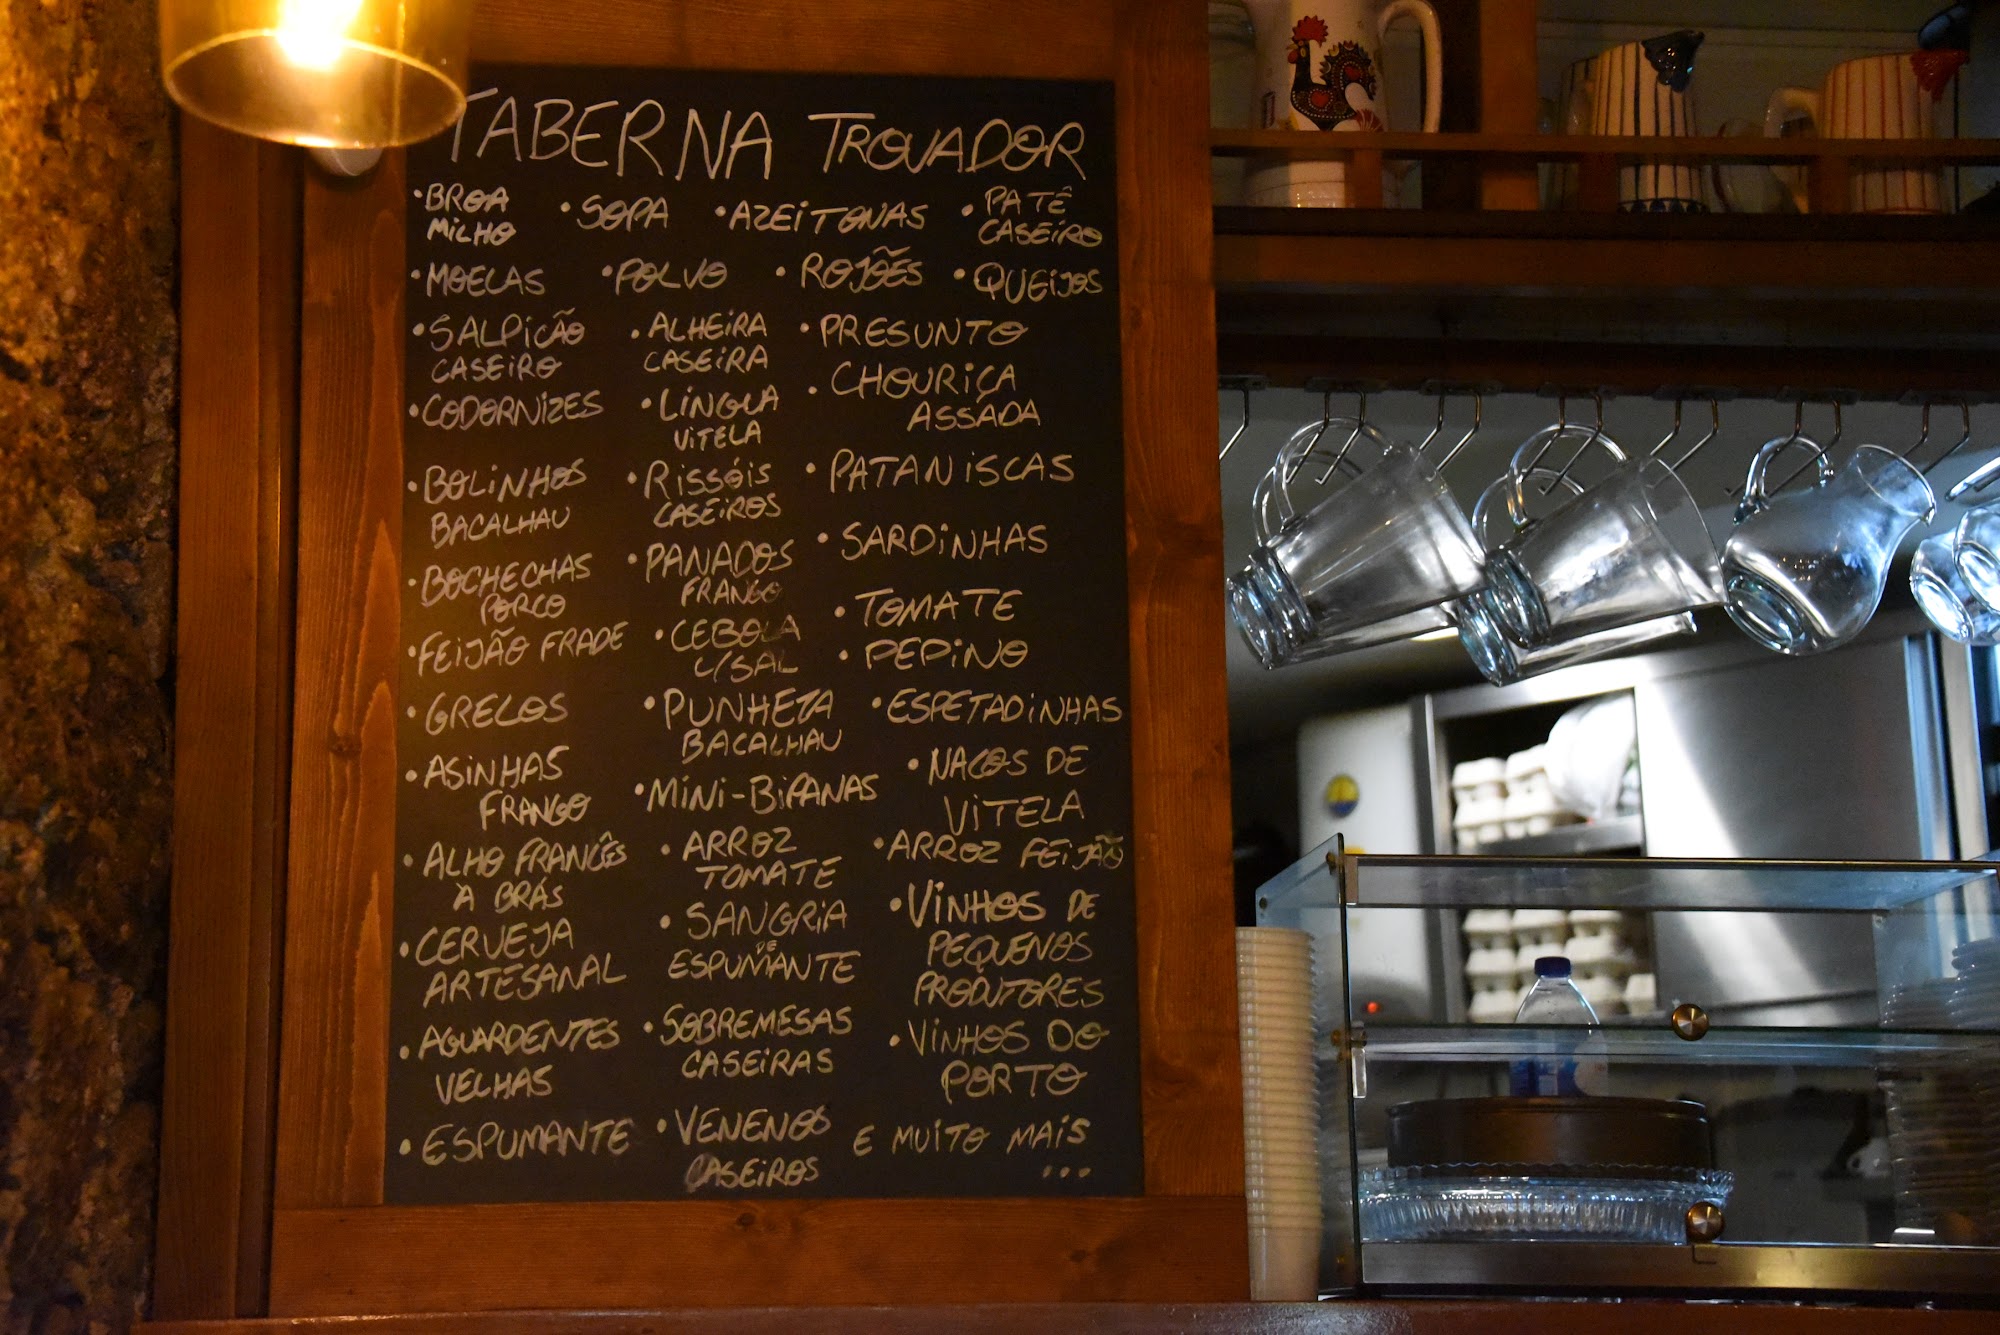 TABERNA TROVADOR
• BROA MILHO
• SOPA
• AZEITONAS
• PATÊ CASEIRO
• MOELAS
• POLVO
• ROJÕES
• QUEIJOS
• SALPICÃO CASEIRO
• ALHEIRA CASEIRA
• PRESUNTO
• CODORNIZES
• LÍNGUA VITELA
• CHOURIÇA ASSADA
• BOLINHOS BACALHAU
• RISSÓIS CASEIROS
• PATANISCAS
• BOCHECHAS PORCO
• PANADOS FRANGO
• SARDINHAS
• FEIJÃO FRADE
• CEBOLA C/SAL
• TOMATE
• PEPINO
• GRELOS
• PUNHETA BACALHAU
• ESPETADINHAS
• ASINHAS FRANGO
• MINI-BIFANAS
• NACOS DE VITELA
• ALHO FRANCÊS À BRÁS
• ARROZ TOMATE
• ARROZ FEIJÃO
• CERVEJA ARTESANAL
• SANGRIA DE ESPUMANTE
• VINHOS DE PEQUENOS PRODUTORES
• AGUARDENTES VELHAS
• SOBREMESAS CASEIRAS
• VINHOS DO PORTO
• ESPUMANTE
• VENENOS CASEIROS
E MUITO MAIS ...